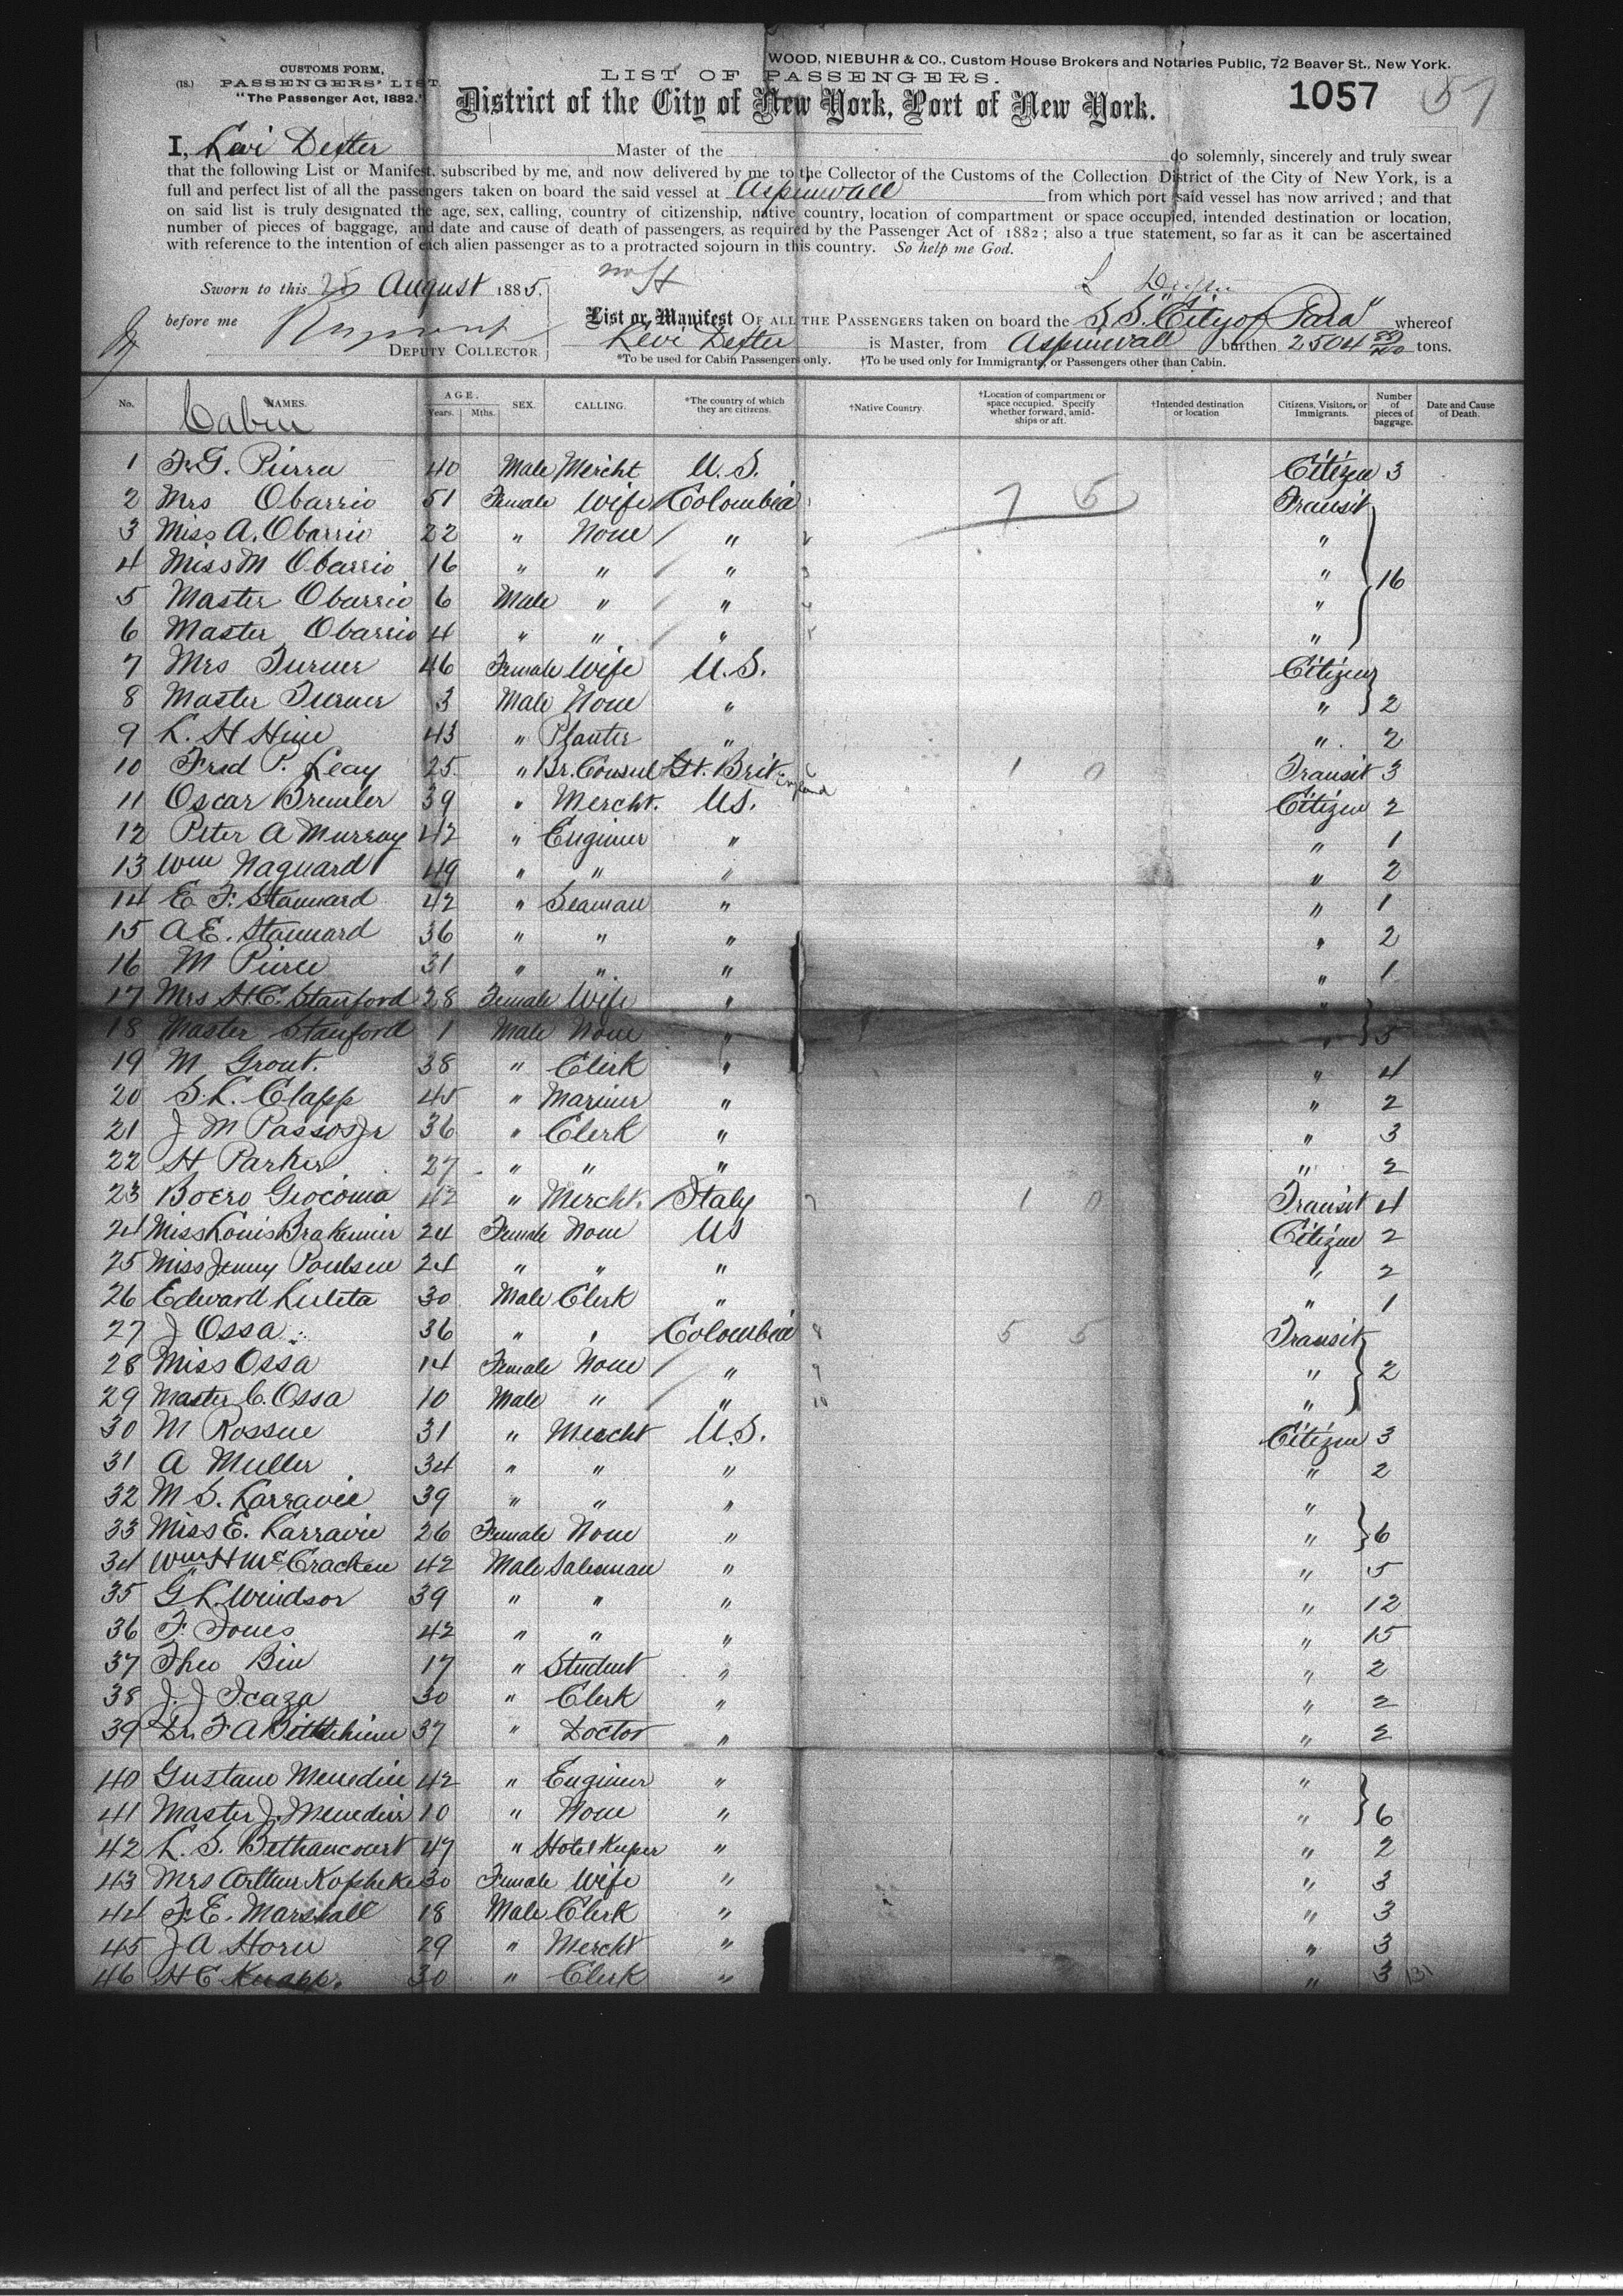 WOOD, NIEBUHR & CO., Custom House Brokers and Notaries Public, 72 Beaver St., New York.
CUSTOMS FORM,
(18.) PASSENGERS' LIST
"The Passenger Act, 1882."
LIST OF PASSENGERS.
District of the City of New York, Port of New York.
1057 57
I, Levi Dexter Master of the do solemnly, sincerely and truly swear
that the following List or Manifest, subscribed by me, and now delivered by me to the Collector of the Customs of the Collection District of the City of New York, is a
full and perfect list of all the passengers taken on board the said vessel at Aspinwall from which port said vessel has now arrived; and that
on said list is truly designated the age, sex, calling, country of citizenship, native country, location of compartment or space occupied, intended destination or location,
number of pieces of baggage, and date and cause of death of passengers, as required by the Passenger Act of 1882; also a true statement, so far as it can be ascertained
with reference to the intention of each alien passenger as to a protracted sojourn in this country. So help me God.
Sworn to this 25 August 1885, L Dexter
before me
DEPUTY COLLECTOR
List or Manifest OF ALL THE PASSENGERS taken on board the S.S. "City of Para" whereof
Levi Dexter is Master, from Aspinwall burthen 2504 tons.
*To be used for Cabin Passengers only. †To be used only for Immigrants, or Passengers other than Cabin.
No. NAMES. AGE. Years. Mths. SEX. CALLING. *The country of which they are citizens. †Native Country. †Location of compartment or space occupied. Specify whether forward, amidships or aft. †Intended destination or location Citizens, Visitors, or Immigrants. Number of pieces of baggage. Date and Cause of Death.
Cabin
1 F.G. Pierra 40 Male Mercht U.S. Citizen 3
2 Mrs Obarrio 51 Female Wife Colombia 1 7 5 Transit
3 Miss A. Obarrio 22 " None " 2 "
4 Miss M Obarrio 16 " " " 3 " 16
5 Master Obarrio 6 Male " " 4 "
6 Master Obarrio 4 " " " 5 "
7 Mrs Turner 46 Female Wife U.S. Citizen
8 Master Turner 3 Male None " " 2
9 L. H Hine 43 " Planter " " 2
10 Fred P. Leay 25 " Br. Consul Gt. Brit England 6 1 0 Transit 3
11 Oscar Bremler 39 " Mercht. US. Citizen 2
12 Peter A Murray 42 " Engineer " " 1
13 Wm Naguard 49 " " " " 2
14 E F. Stannard 42 " Seaman " " 1
15 A E. Stannard 36 " " " " 2
16 M Pierce 31 " " " " 1
17 Mrs H C. Stanford 28 Female Wife " "
18 Master Stanford 1 Male None " " 5
19 M Grout. 38 " Clerk " " 4
20 S. L. Clapp 45 " Mariner " " 2
21 J M Passos Jr 36 " Clerk " " 3
22 H Parker 27 " " " " 2
23 Boero Giocoma 42 " Mercht. Italy 7 1 0 Transit 4
24 Miss Louis Brakemeir 24 Female None US Citizen 2
25 Miss Jenny Poulsen 24 " " " " 2
26 Edward Luleta 30 Male Clerk " " 1
27 J Ossa 36 " " Colombia 8 5 5 Transit
28 Miss Ossa 14 Female None " 9 " 2
29 Master C. Ossa 10 Male " " 10 "
30 M Rossue 31 " Mercht U.S. Citizen 3
31 A Muller 34 " " " " 2
32 M S. Larravie 39 " " " "
33 Miss E. Larravie 26 Female None " " 6
34 Wm H McCracken 42 Male Salesman " " 5
35 G L. Windsor 39 " " " " 12
36 F. Jones 42 " " " " 15
37 Theo Bin 17 " Student " " 2
38 J. J Icaza 30 " Clerk " " 2
39 Dr. F A 37 " Doctor " " 2
40 Gustave Menedier 42 " Engineer " "
41 Master J. Menedier 10 " None " " 6
42 L. S. Bethancourt 47 " Hotel Keeper " " 2
43 Mrs Arthur Kopheke 30 Female Wife " " 3
44 F. E. Marshall 18 Male Clerk " " 3
45 J A Horn 29 " Mercht " " 3
46 H C Knapp. 30 " Clerk " " 3 131